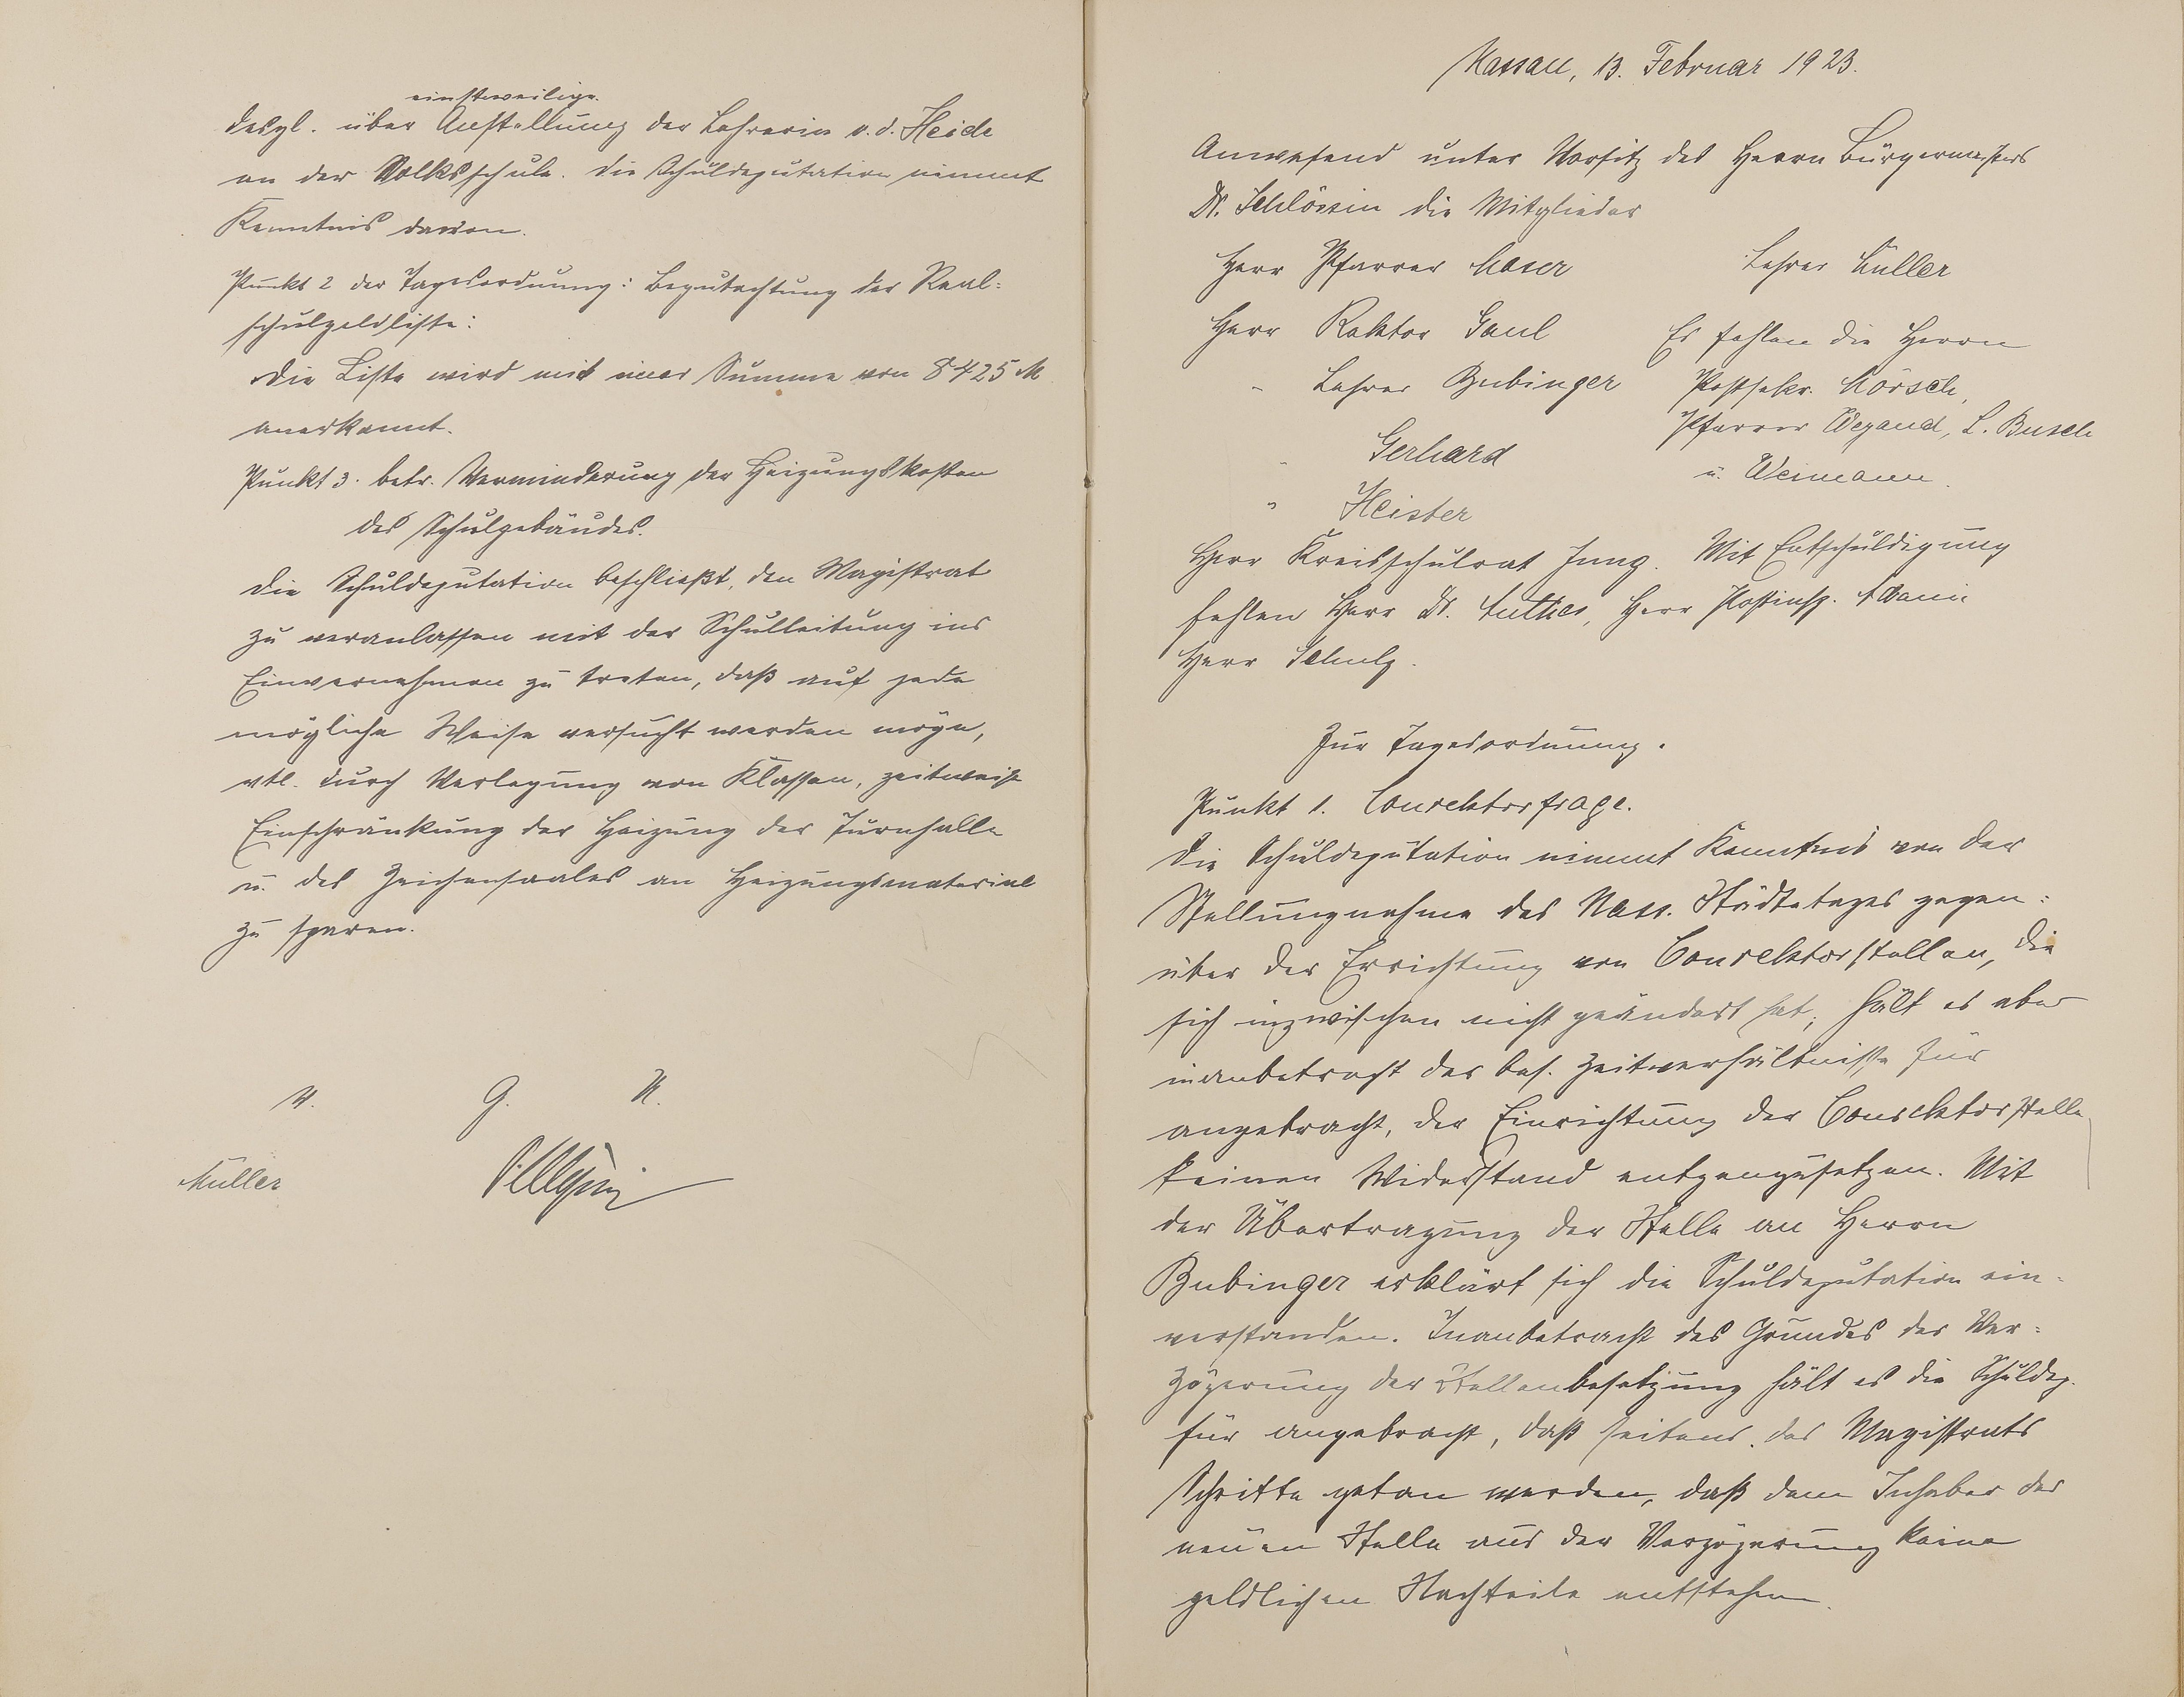 einstweilige
desgl. über Anstellung der Lehrerin v. d. Heide
an der Volksschule. Die Schuldeputation nimmt
Kenntnis davon.
Punkt 2 der Tagesordnung: Begutachtung der Real-
schulgeldliste:
Die Liste wird mit einer Summe von 8425 M
anerkannt.
Punkt 3. betr. Verminderung der Heizungskosten
des Schulgebäudes.
Die Schuldeputation beschließt, den Magistrat
zu veranlassen mit der Schulleitung ins
Einvernehmen zu treten, daß auf jede
mögliche Weise versucht werden möge,
etl. durch Verlegung von Klassen, zeitweise
Einschränkung der Heizung der Turnhalle
u. des Zeichensaales an Heizungsmaterial
zu sparen.
V. G. U.
Müller
Nassau, 13. Februar 1923.
Anwesend unter Vorsitz des Herrn Bürgermeisters
Dr. Schlössin die Mitglieder
Herr Pfarrer Moser
Herr Rektor Gaul
" Lehrer Bubinger
" Gerhard
" Heister
Lehrer Müller
Es fehlen die Herrn
Postsekr. Mörsch,
Pfarrer Wegand, L. Busch
u. Weimann.
Herr Kreisschulrat Jung. Mit Entschuldigung
fehlen Herr Dr. Anthes, Herr Postinsp. Adami
Herr Schulz.
Zur Tagesordnung.
Punkt 1. Conrektorfrage.
Die Schuldeputation nimmt Kenntnis von der
Stellungnahme des Nass. Städtetages gegen-
über der Errichtung von Conrektorstellen, die
sich inzwischen nicht geändert hat; hält es aber
inanbetracht der bes. Zeitverhältnisse für
angebracht, der Einrichtung der Conrektorstelle
keinen Widerstand entgenzusetzen. Mit
der Übertragung der Stelle an Herrn
Bubinger erklärt sich die Schuldeputation ein-
verstanden. Inanbetracht des Grundes der Ver-
zögerung der Stellenbesetzung hält es die Schuldep.
für angebracht, daß seitens des Magistrats
Schritte getan werden, daß dem Inhaber der
neuen Stelle aus der Verzögerung keine
geldlichen Nachteile entstehen.